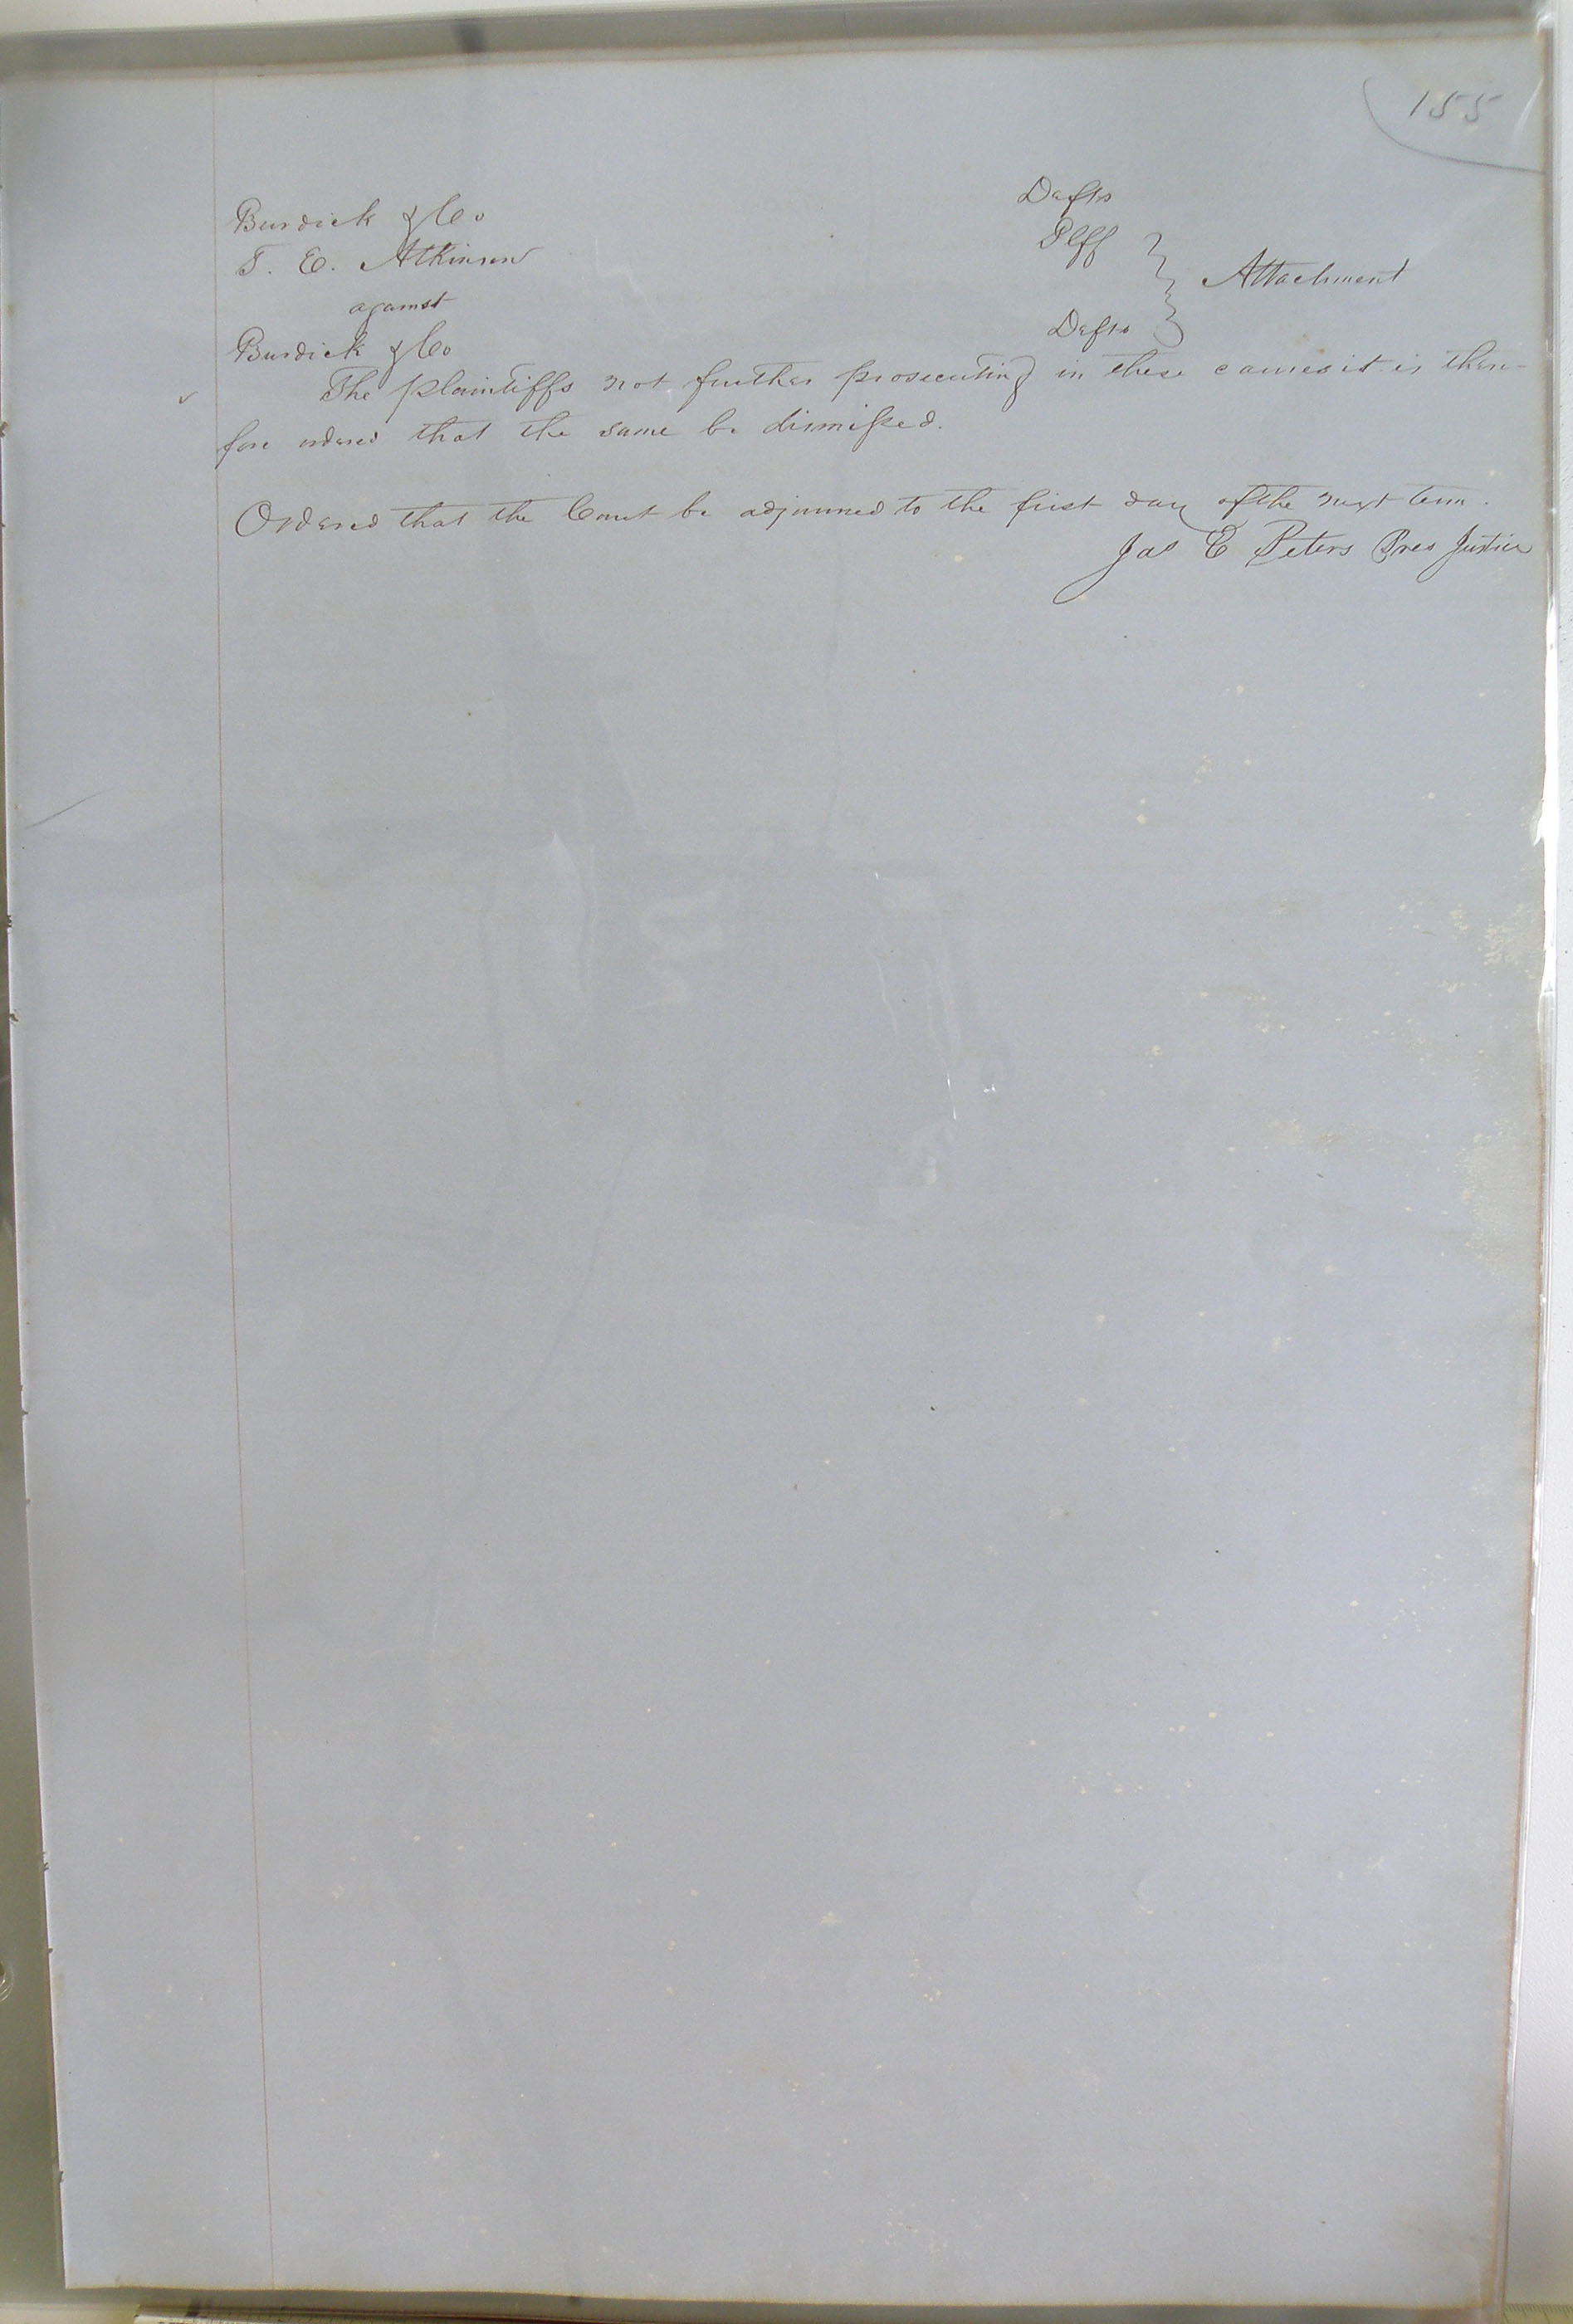 155
Burdick & Co Defts
T. E. Atkinson Plff
against } Attachment
Burdick & Co Defts
The plaintiffs not further prosecuting in these causes it is there-
fore ordered that the same be dismissed.
Ordered that the Court be adjourned to the first day of the next term.
Jas E Peters Pres Justice